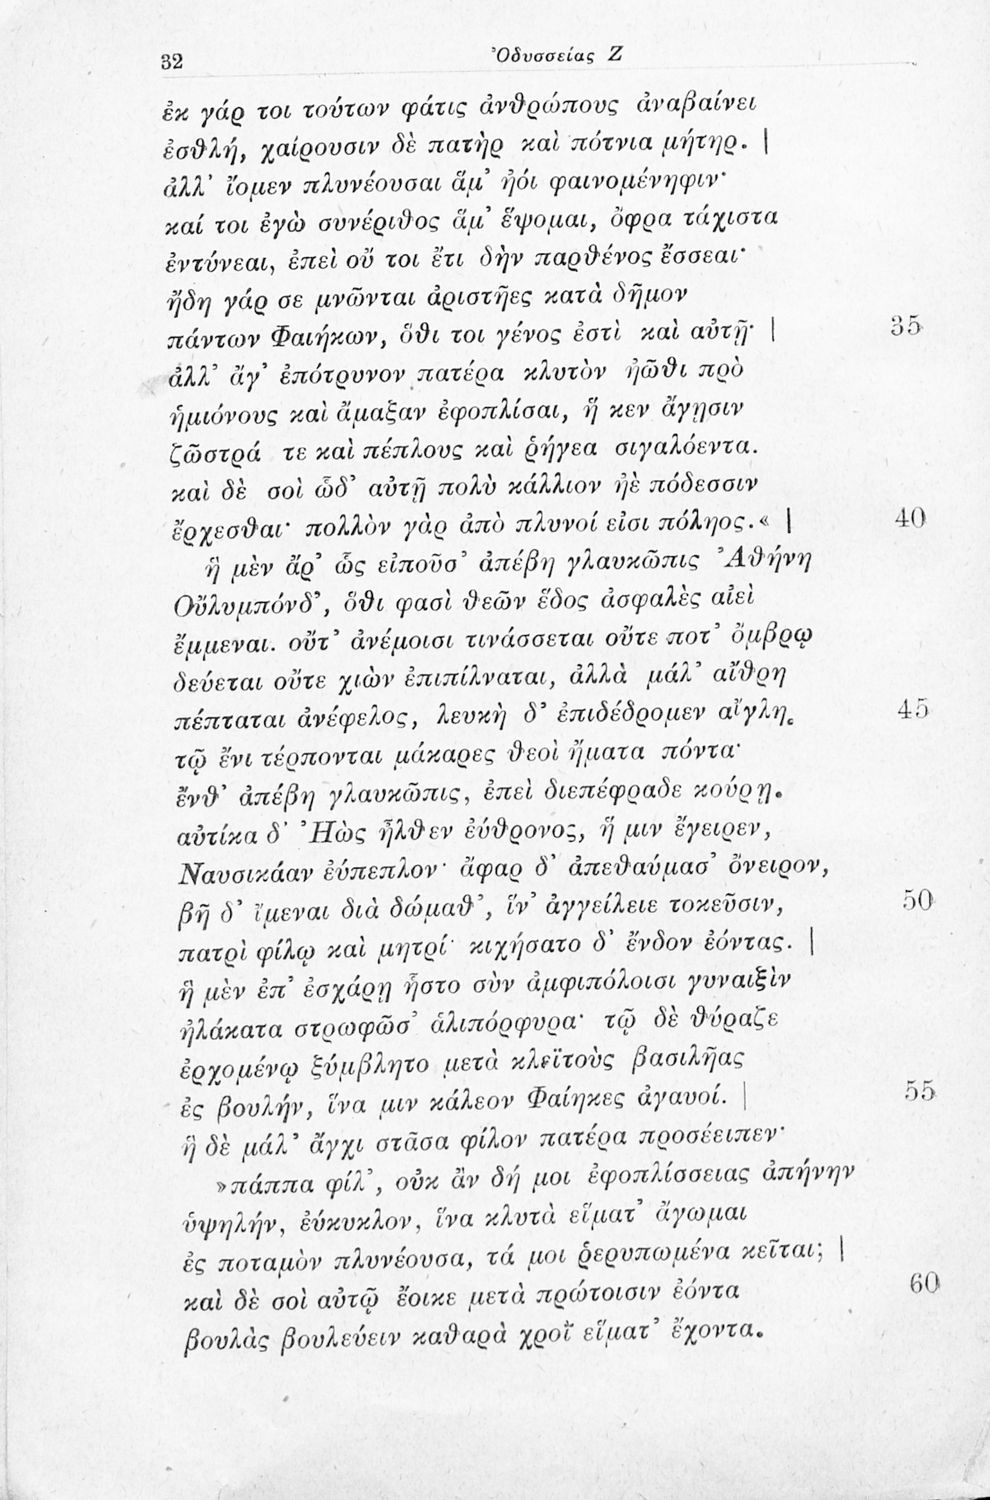 32
Ὀδυσσείας Ζ
ἐκ γάρ τοι τούτων φάτις ἀνθρώπους ἀναβαίνει
ἐσθλή, χαίρουσιν δὲ πατὴρ καὶ πότνια μήτηρ. |
ἀλλ' ἴομεν πλυνέουσαι ἅμ' ἠόι φαινομένηφιν·
καί τοι ἐγὼ συνέριθος ἅμ' ἕψομαι, ὄφρα τάχιστα
ἐντύνεαι, ἐπεὶ οὔ τοι ἔτι δὴν παρθένος ἔσσεαι·
ἤδη γάρ σε μνῶνται ἀριστῆες κατὰ δῆμον
πάντων Φαιήκων, ὅθι τοι γένος ἐστὶ καὶ αὐτῇ· | 35
ἀλλ' ἄγ' ἐπότρυνον πατέρα κλυτὸν ἠῶθι πρὸ
ἡμιόνους καὶ ἄμαξαν ἐφοπλίσαι, ἥ κεν ἄγῃσιν
ζῶστρά τε καὶ πέπλους καὶ ῥήγεα σιγαλόεντα.
καὶ δὲ σοὶ ὧδ' αὐτῇ πολὺ κάλλιον ἠὲ πόδεσσιν
ἔρχεσθαι· πολλὸν γὰρ ἀπὸ πλυνοί εἰσι πόληος.« | 40
ἣ μὲν ἄρ' ὣς εἰποῦσ' ἀπέβη γλαυκῶπις Ἀθήνη
Οὔλυμπόνδ', ὅθι φασὶ θεῶν ἕδος ἀσφαλὲς αἰεὶ
ἔμμεναι. οὔτ' ἀνέμοισι τινάσσεται οὔτε ποτ' ὄμβρῳ
δεύεται οὔτε χιὼν ἐπιπίλναται, ἀλλὰ μάλ' αἴθρη
πέπταται ἀνέφελος, λευκὴ δ' ἐπιδέδρομεν αἴγλη. 45
τῷ ἔνι τέρπονται μάκαρες θεοὶ ἤματα πόντα·
ἔνθ' ἀπέβη γλαυκῶπις, ἐπεὶ διεπέφραδε κούρῃ.
αὐτίκα δ' Ἠὼς ἦλθεν ἐύθρονος, ἥ μιν ἔγειρεν,
Ναυσικάαν ἐύπεπλον· ἄφαρ δ' ἀπεθαύμασ' ὄνειρον,
βῆ δ' ἴμεναι διὰ δώμαθ', ἵν' ἀγγείλειε τοκεῦσιν, 50
πατρὶ φίλῳ καὶ μητρί· κιχήσατο δ' ἔνδον ἐόντας. |
ἣ μὲν ἐπ' ἐσχάρῃ ἧστο σὺν ἀμφιπόλοισι γυναιξὶν
ἠλάκατα στρωφῶσ' ἁλιπόρφυρα· τῷ δὲ θύραζε
ἐρχομένῳ ξύμβλητο μετὰ κλεϊτοὺς βασιλῆας
ἐς βουλήν, ἵνα μιν κάλεον Φαίηκες ἀγαυοί. | 55
ἣ δὲ μάλ' ἄγχι στᾶσα φίλον πατέρα προσέειπεν·
»πάππα φίλ', οὐκ ἂν δή μοι ἐφοπλίσσειας ἀπήνην
ὑψηλήν, ἐύκυκλον, ἵνα κλυτὰ εἵματ' ἄγωμαι
ἐς ποταμὸν πλυνέουσα, τά μοι ῥερυπωμένα κεῖται; |
καὶ δὲ σοὶ αὐτῷ ἔοικε μετὰ πρώτοισιν ἐόντα 60
βουλὰς βουλεύειν καθαρὰ χροῒ εἵματ' ἔχοντα.